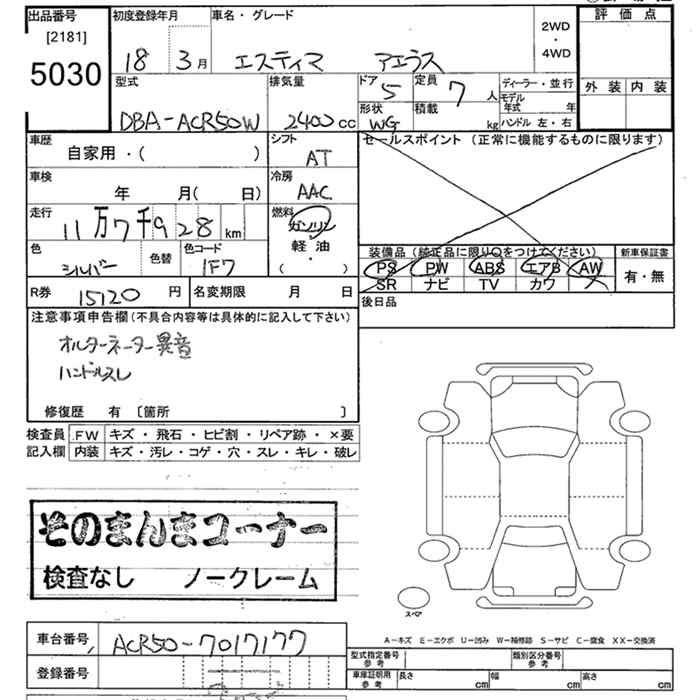 出品番号 初度登録年月 車名・グレード 2WD・4WD 評価点
[2181]
5030
18 3月 エスティマ アエラス
外装 内装
型式 排気量 ドア 5 定員 7人 ディーラー・並行
DBA-ACR50W 2400cc 形状 WG 積載 kg モデル年式 年
ハンドル 左・右
車歴 シフト セールスポイント(正常に機能するものに限ります)
自家用・( ) AT
車検 冷房
年 月( 日) AAC
走行 燃料
11万7千928km ガソリン
軽油
・
( )
色 色替 色コード
シルバー 1F7
装備品(純正品に限り○をつけてください) 新車保証書
PS PW ABS エアB AW 有・無
SR ナビ TV カワ
R券 15120円 名変期限 月 日 後日品
注意事項申告欄(不具合内容等は具体的に記入して下さい)
オルターネーター異音
ハンドルスレ
修復歴 有 [箇所 ]
検査員 FW キズ・飛石・ヒビ割・リペア跡・×要
記入欄 内装 キズ・汚レ・コゲ・穴・スレ・キレ・破レ
そのまんまコーナー
検査なし ノークレーム
スペア
A-キズ E-エクボ U-凹み W-補修跡 S-サビ C-腐食 XX-交換済
車台番号 ACR50-7017177
登録番号
型式指定番号 参考 類別区分番号 参考
車庫証明用 参考 長さ cm 幅 cm 高さ cm